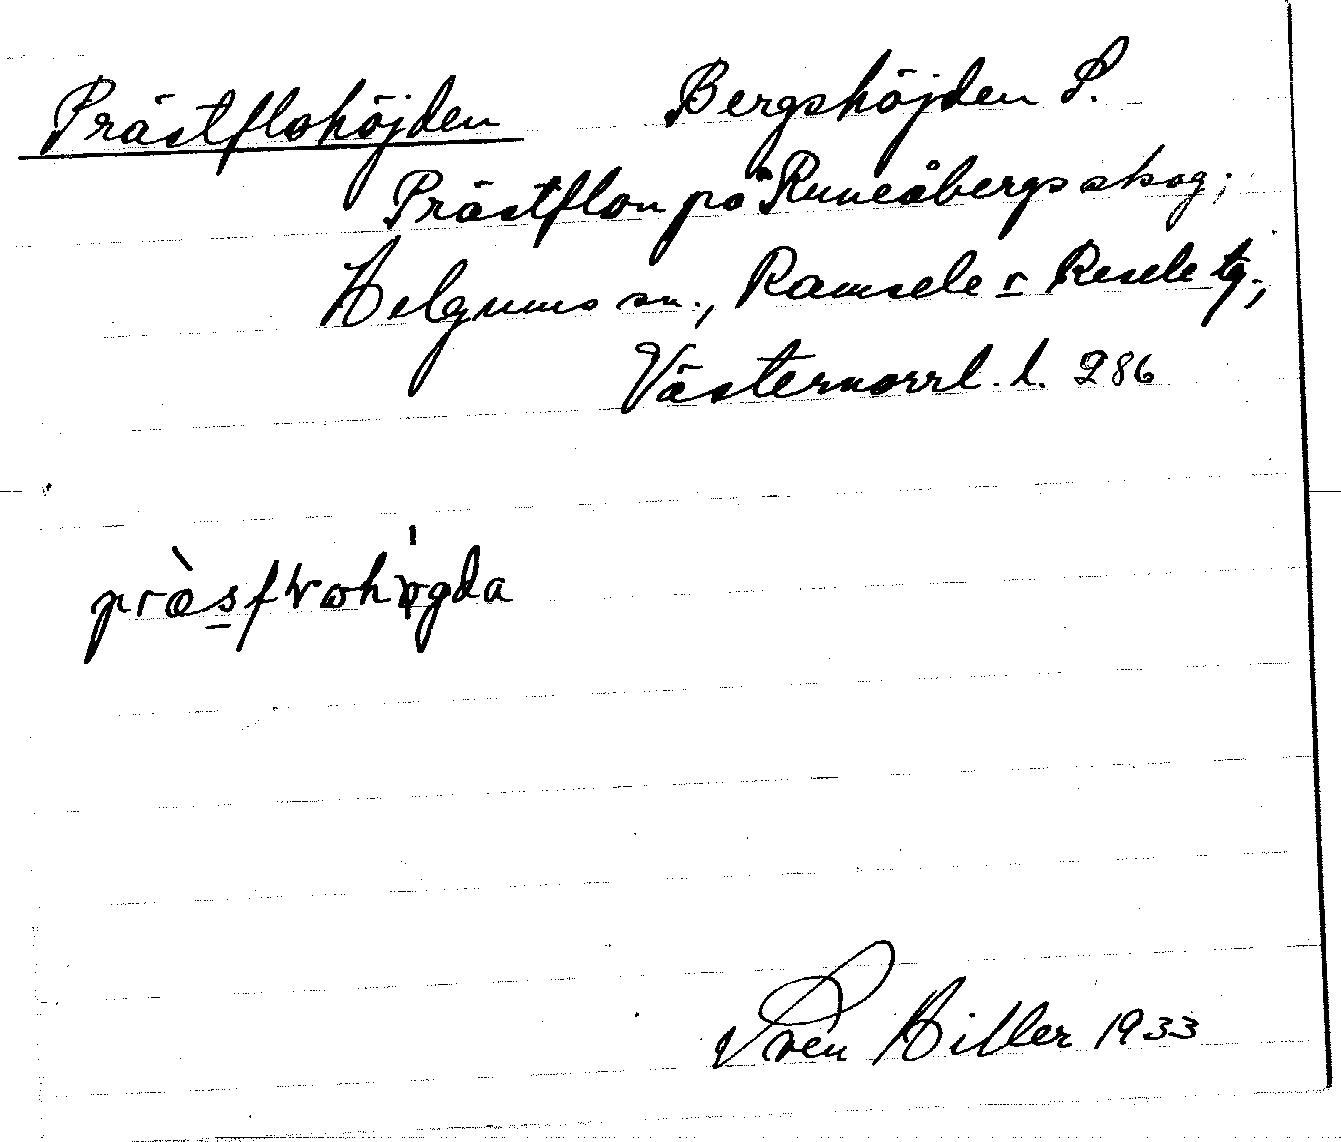 Prästflohöjden Bergshöjden S.
Prästflon på Runeåbergs skog;
Helgums sn., Ramsele o Resele tg.,
Västernorrl. l. 286
Sven Hiller 1933